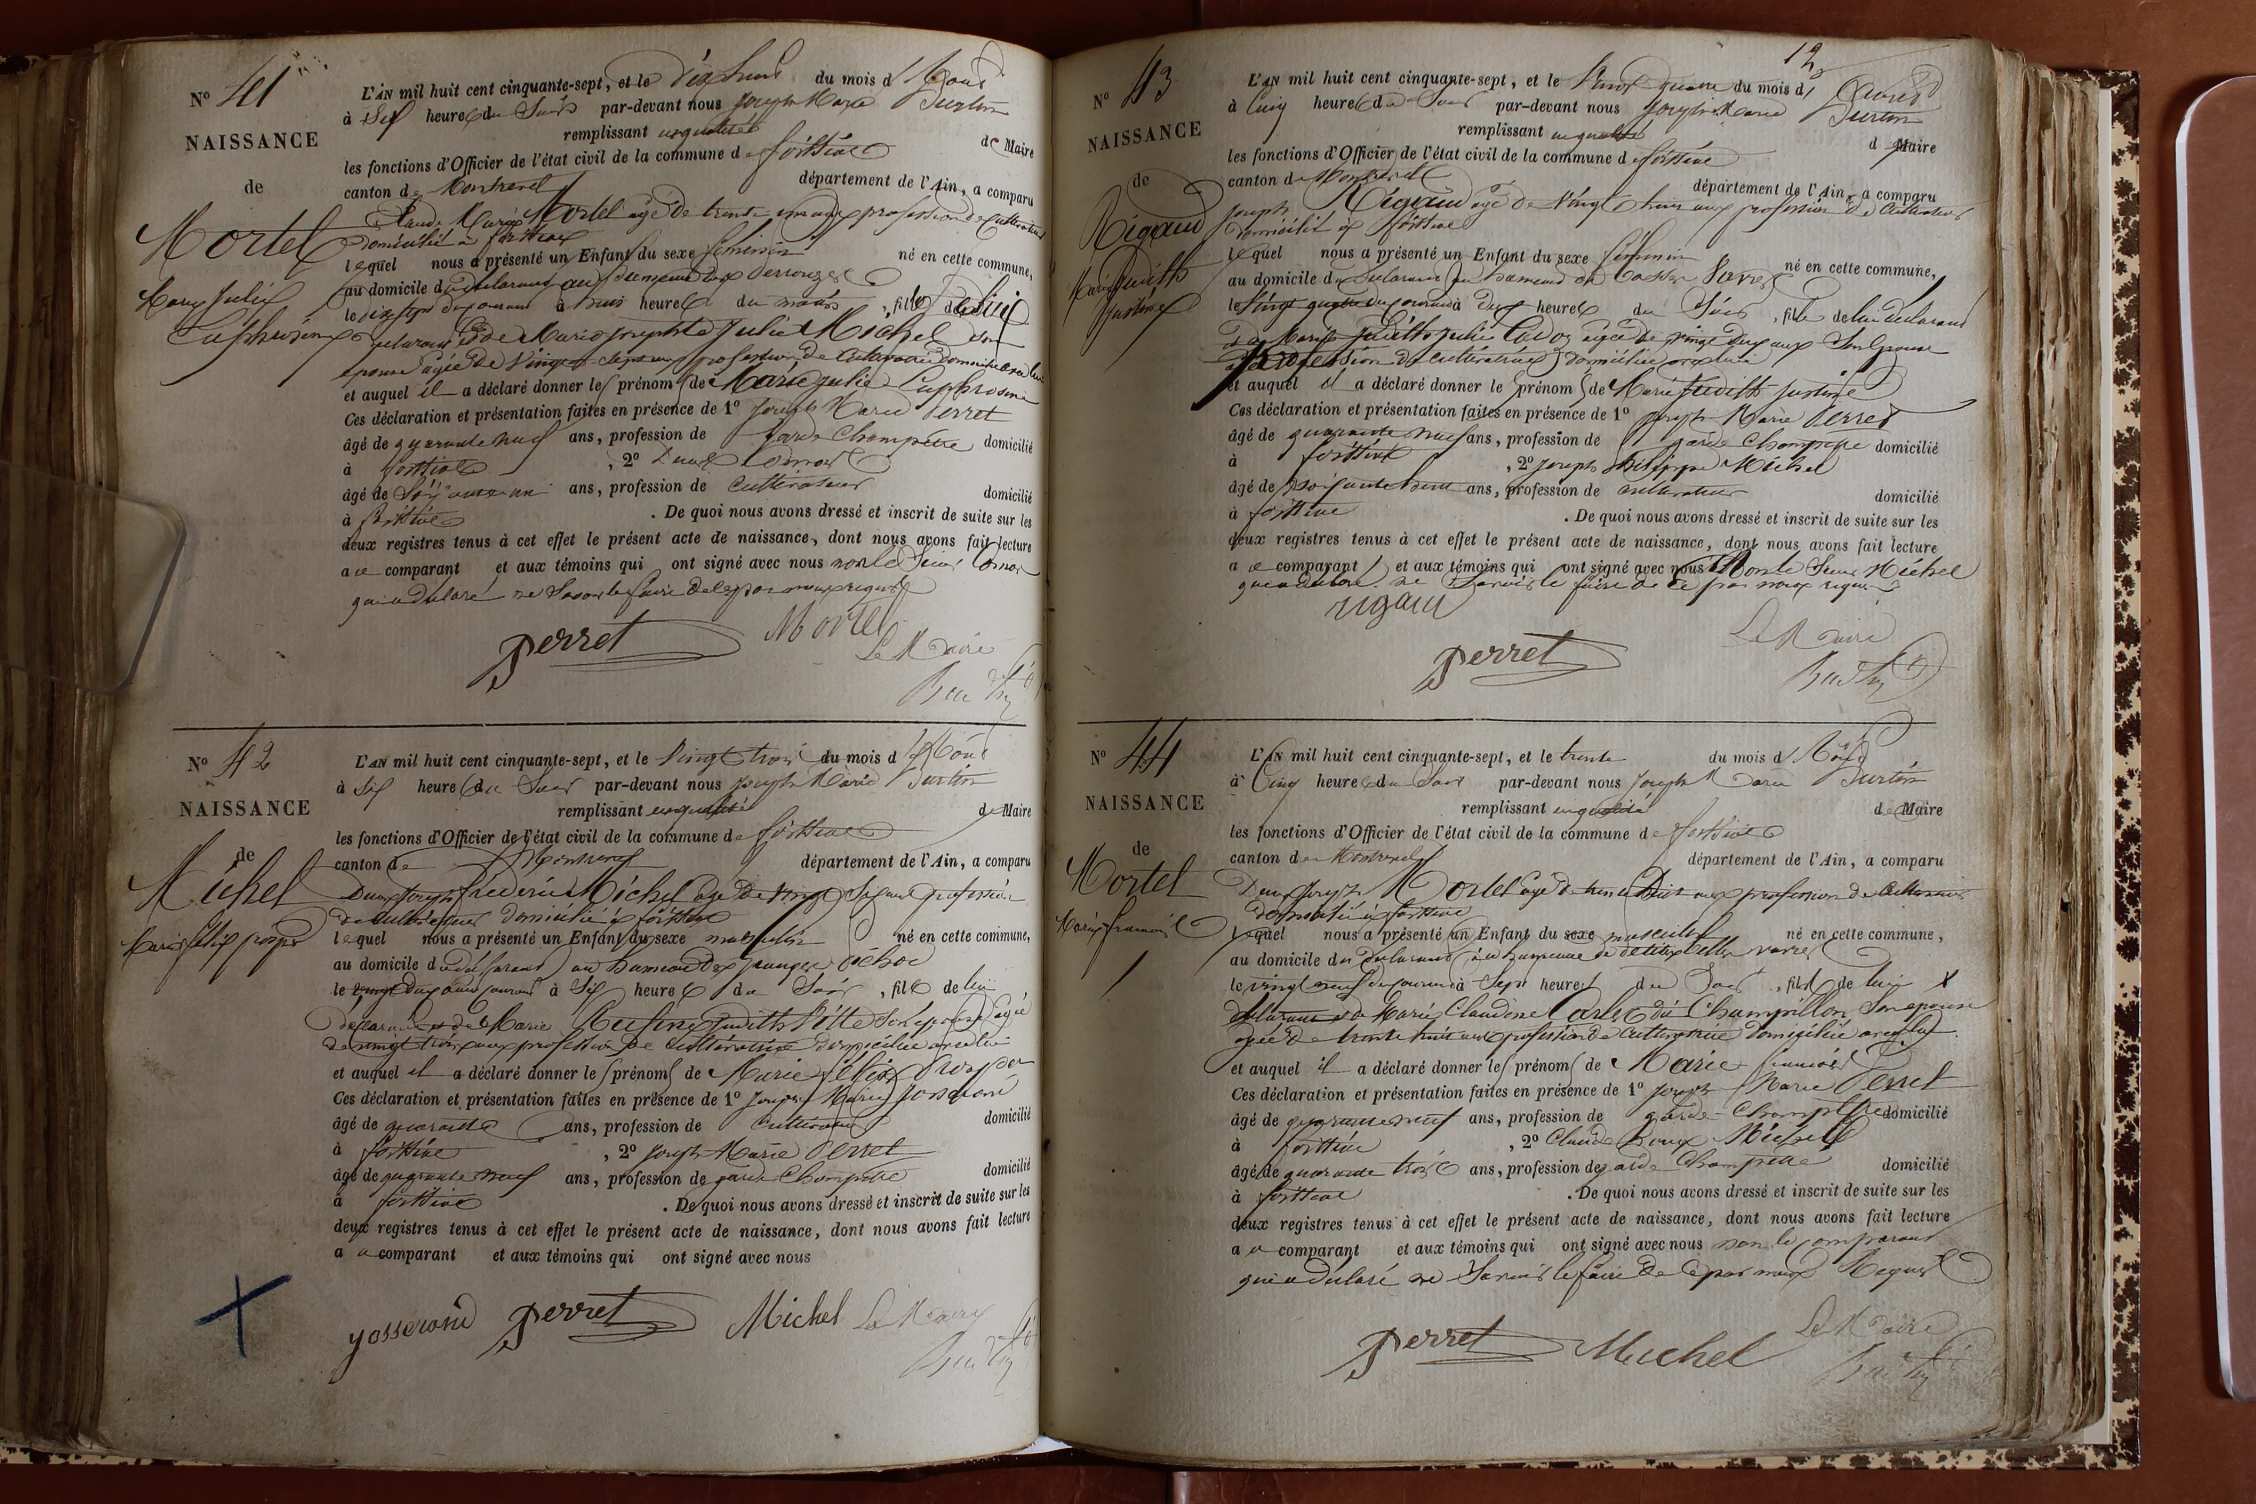 N° 41
NAISSANCE
de
Mortel
Marie Julie
Euphrosine
L'AN mil huit cent cinquante-sept, et le du mois d'
à Six heures du Soir par-devant nous Joseph Marie Burtin
remplissant en qualité de Maire
les fonctions d'Officier de l'état civil de la commune de foissiat
canton de Montrevel département de l'Ain, a comparu
Claude Marie Mortel âgé de trente ans profession de Cultivateur
domicilié à foissiat
lequel nous a présenté un Enfant du sexe féminin né en cette commune,
au domicile du déclarant au hameau des
le dix sept du courant à heures du matin, fille de lui
déclarant et de Marie Josephte Julie Michel son
épouse âgée de Vingt-sept ans profession de Cultivatrice domiciliée avec lui
et auquel il a déclaré donner les prénoms de Marie Julie Euphrosine
Ces déclaration et présentation faites en présence de 1° Joseph Marie Perret
âgé de quarante neuf ans, profession de garde Champêtre domicilié
à foissiat, 2°
âgé de ans, profession de Cultivateur domicilié
à foissiat. De quoi nous avons dressé et inscrit de suite sur les
deux registres tenus à cet effet le présent acte de naissance, dont nous avons fait lecture
au comparant et aux témoins qui ont signé avec nous non le Sieur
qui a déclaré ne Savoir le faire de ce par nous requis
Perret Mortel
Le Maire
Burtin
N° 42
NAISSANCE
de
Michel
Marie félix prosper
L'AN mil huit cent cinquante-sept, et le Vingt trois du mois d'Août
à Six heures du Soir par-devant nous Joseph Marie Burtin
remplissant en qualité de Maire
les fonctions d'Officier de l'état civil de la commune de foissiat
canton de Montrevel département de l'Ain, a comparu
Joseph frédéric Michel âgé de profession
de cultivateur domicilié à foissiat
lequel nous a présenté un Enfant du sexe masculin né en cette commune,
au domicile du déclarant au hameau des granges
le vingt deux du courant à Six heures du Soir, fils de lui
déclarant et de Marie Judith Pitte Son épouse âgée
de vingt trois ans profession de cultivatrice domiciliée avec lui
et auquel il a déclaré donner les prénoms de Marie félix Prosper
Ces déclaration et présentation faites en présence de 1° Joseph Marie Josserand
âgé de quarante ans, profession de Cultivateur domicilié
à foissiat, 2° Joseph Marie Perret
âgé de quarante neuf ans, profession de garde Champêtre domicilié
à foissiat. De quoi nous avons dressé et inscrit de suite sur les
deux registres tenus à cet effet le présent acte de naissance, dont nous avons fait lecture
au comparant et aux témoins qui ont signé avec nous
josserand Perret Michel Le Maire
Burtin
12
N° 43
NAISSANCE
de
Rigaud
Marie Judith
Justine
L'AN mil huit cent cinquante-sept, et le Vingt quatre du mois d'
à Cinq heures du Soir par-devant nous Joseph Marie Burtin
remplissant en qualité de Maire
les fonctions d'Officier de l'état civil de la commune de foissiat
canton de Montrevel département de l'Ain, a comparu
Joseph Rigaud âgé de Vingt huit ans profession de Cultivateur
domicilié à foissiat
lequel nous a présenté un Enfant du sexe féminin né en cette commune,
au domicile du déclarant au hameau de
le Vingt quatre du courant à heures du Soir, fille de lui déclarant
et de Marie Judith Julie âgée de vingt deux ans Son épouse
profession de cultivatrice domiciliée avec lui
et auquel il a déclaré donner les prénoms de Marie Judith Justine
Ces déclaration et présentation faites en présence de 1° Joseph Marie Perret
âgé de quarante neuf ans, profession de garde Champêtre domicilié
à foissiat, 2° Joseph Philippe Michel
âgé de ans, profession de cultivateur domicilié
à foissiat. De quoi nous avons dressé et inscrit de suite sur les
deux registres tenus à cet effet le présent acte de naissance, dont nous avons fait lecture
au comparant et aux témoins qui ont signé avec nous Non le Sieur Michel
qui a déclaré ne Savoir le faire de ce par nous requis
rigaud
Perret
Le Maire
Burtin
N° 44
NAISSANCE
de
Mortel
Marie francois
L'AN mil huit cent cinquante-sept, et le trente du mois d'Août
à Cinq heures du Soir par-devant nous Joseph Marie Burtin
remplissant en qualité de Maire
les fonctions d'Officier de l'état civil de la commune de foissiat
canton de Montrevel département de l'Ain, a comparu
Joseph Mortel âgé de trente huit ans profession de Cultivateur
domicilié à foissiat
lequel nous a présenté un Enfant du sexe masculin né en cette commune,
au domicile du déclarant au hameau de
le vingt neuf du courant à Sept heures du Soir, fils de lui
déclarant et de Marie Claudine Carlet dit Champillon Son épouse
âgée de trente huit ans profession de cultivatrice domiciliée avec lui
et auquel il a déclaré donner les prénoms de Marie francois
Ces déclaration et présentation faites en présence de 1° Joseph Marie Perret
âgé de quarante neuf ans, profession de garde-Champêtre domicilié
à foissiat, 2° Claude Michel
âgé de quarante trois ans, profession de garde Champêtre domicilié
à foissiat. De quoi nous avons dressé et inscrit de suite sur les
deux registres tenus à cet effet le présent acte de naissance, dont nous avons fait lecture
au comparant et aux témoins qui ont signé avec nous non le comparant
qui a déclaré ne Savoir le faire de ce par nous Requis
Perret Michel
Le Maire
Burtin